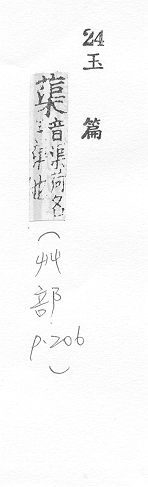 24
玉篇
蕖
音渠荷名
(艸部
p.206)